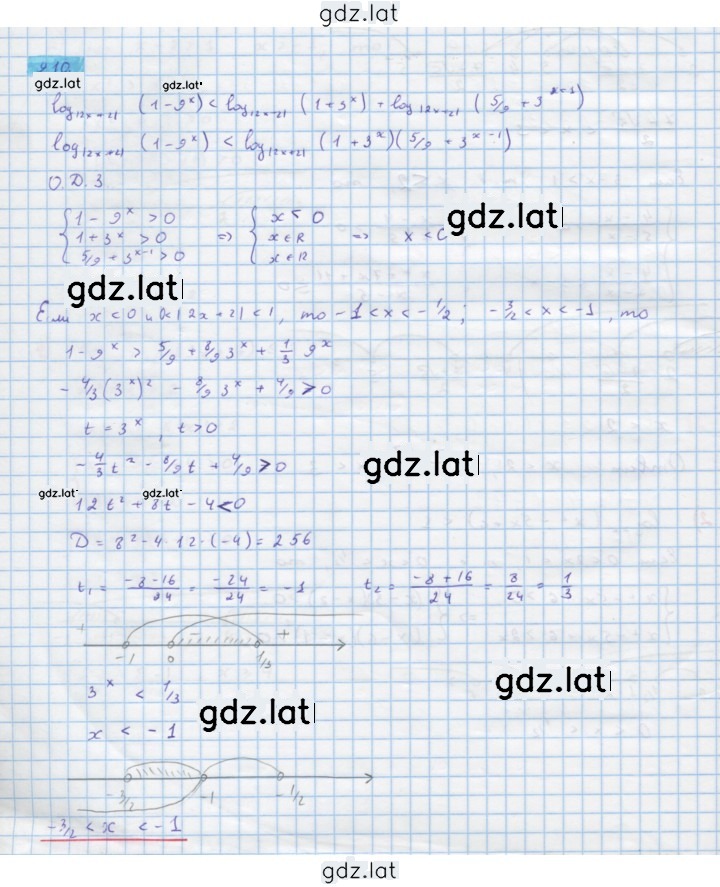 gdz.lat
910
gdz.lat gdz.lat
log|2x+2| (1-9^x) < log|2x+2| (1+3^x) + log|2x+2| (5/9 + 3^(x-1))
log|2x+2| (1-9^x) < log|2x+2| (1+3^x)(5/9 + 3^(x-1))
О.Д.З
{1-9^x > 0 {x < 0
{1+3^x > 0 => {x ∈ R => x < 0
{5/9 + 3^(x-1) > 0 {x ∈ R
gdz.lat
gdz.lat
Если x < 0 и 0<|2x+2| < 1, то -1 < x < -1/2; -3/2 < x < -1, то
1-9^x > 5/9 + 8/9 3^x + 1/3 9^x
-4/3 (3^x)^2 - 8/9 3^x + 4/9 > 0
t = 3^x, t>0
-4/3 t^2 - 8/9 t + 4/9 > 0
gdz.lat
gdz.lat gdz.lat
12t^2 + 8t - 4 < 0
D = 8^2 - 4·12·(-4) = 256
t1 = (-8-16)/24 = -24/24 = -1 t2 = (-8+16)/24 = 8/24 = 1/3
+ - +
-1 0 1/3
3^x < 1/3
gdz.lat
gdz.lat
x < -1
-3/2 -1 -1/2
-3/2 < x < -1
gdz.lat